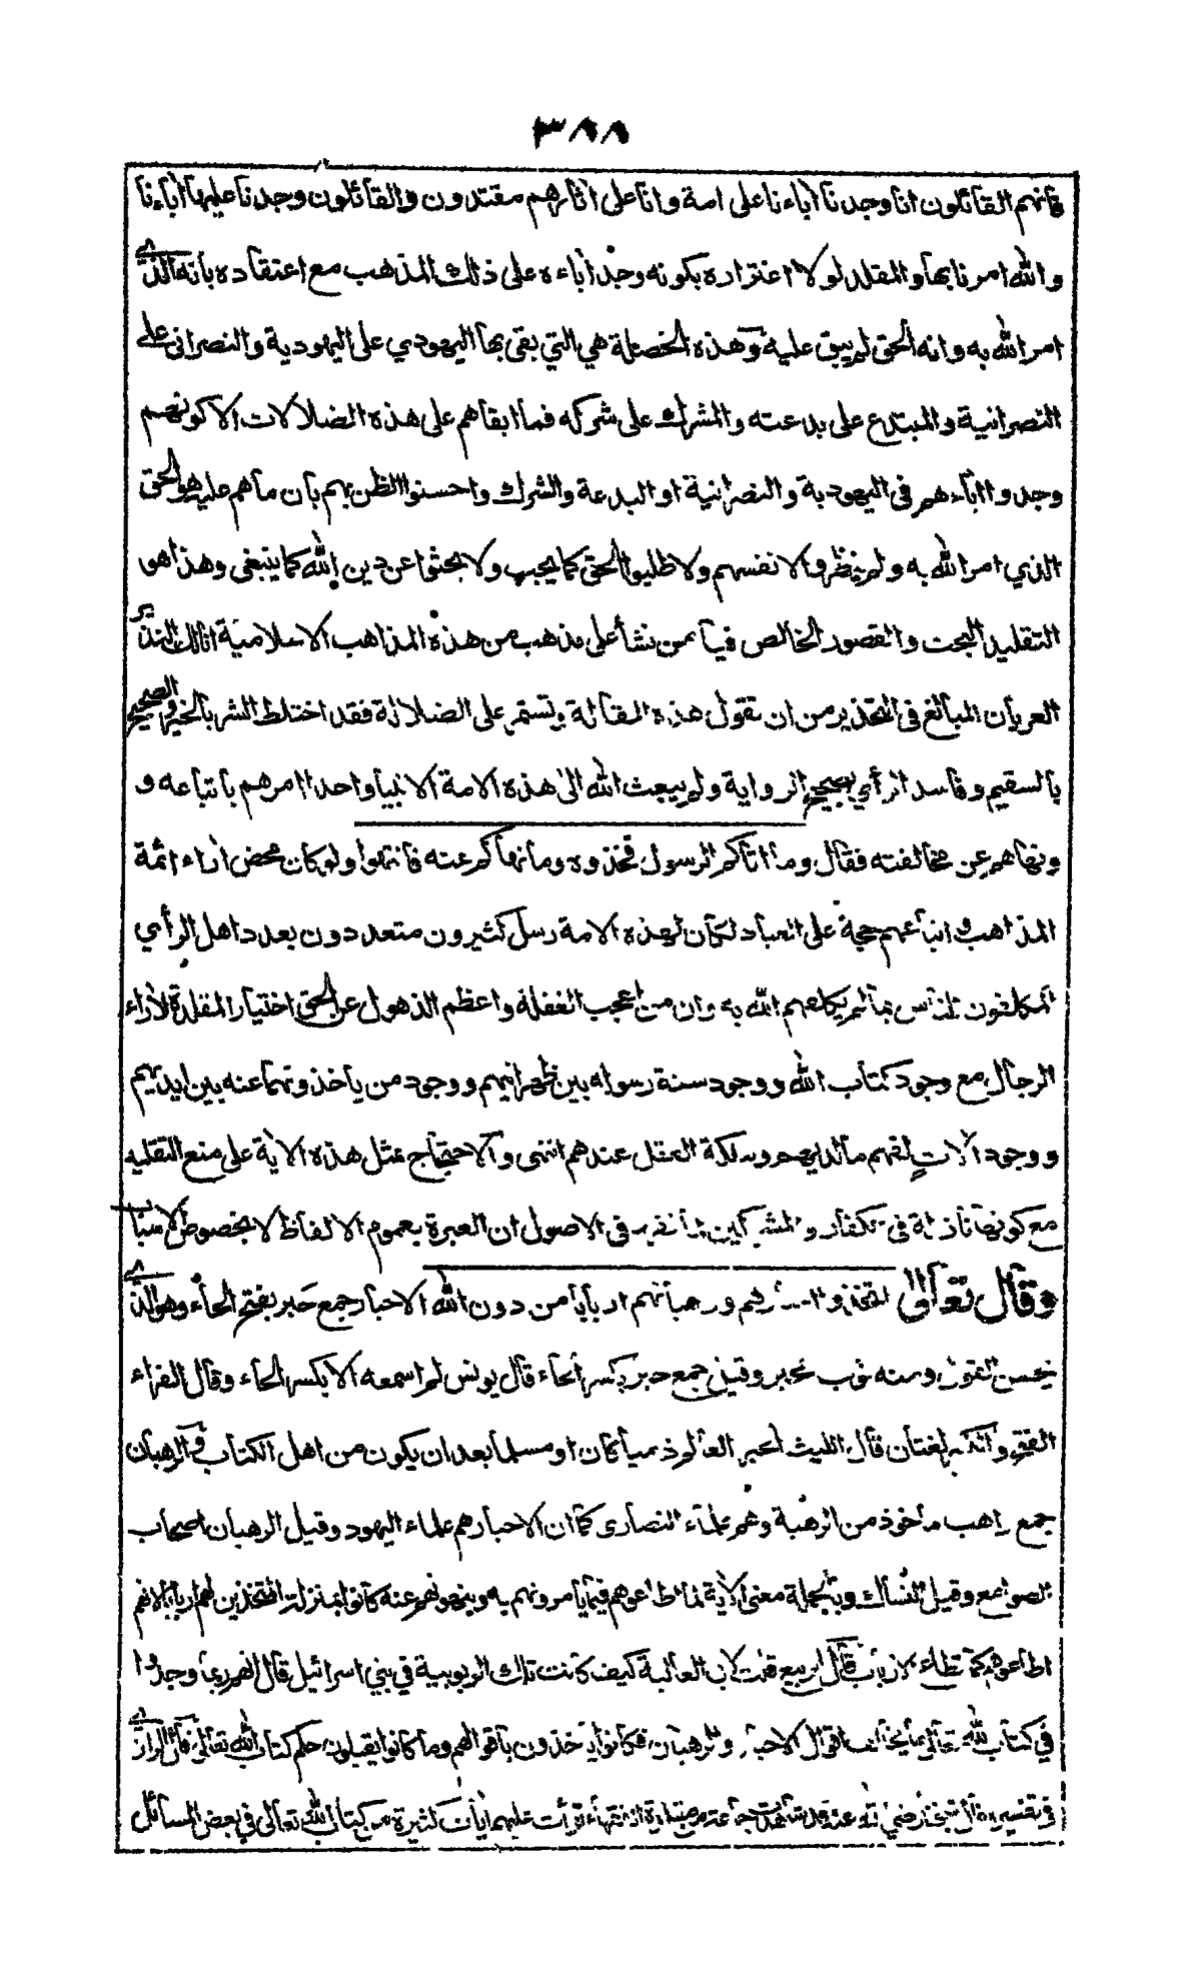 ٣٨٨
فانهم القائلون انا وجدنا اباءنا على امة وانا على اثارهم مقتدون والقائلون وجدنا عليها اباءنا
والله امرنا بها والمقلد لولا اغتراره بكونه وجد اباءه على ذلك المذهب مع اعتقاده بانه الذي
امر الله به وانه الحق لم يبق عليه وهذه الخصلة هي التي بقي بها اليهودي على اليهودية والنصراني على
النصرانية والمبتدع على بدعته والمشرك على شركه فما ابقاهم على هذه الضلالات الا كونهم
وجدوا اباءهم في اليهودية والنصرانية او البدعة والشرك واحسنوا الظن بهم بان ما هم عليه هو الحق
الذي امر الله به ولم ينظروا لانفسهم ولا طلبوا الحق كما يجب ولا بحثوا عن دين الله كما ينبغي وهذا هو
التقليد البحت والقصور الخالص فيا من نشأ على مذهب من هذه المذاهب الاسلامية انا لك النذير
العريان المبالغ في التحذير من ان تقول هذه المقالة وتستمر على الضلالة فقد اختلط الشر بالخير والصحيح
بالسقيم وفاسد الرأي بصحيح الرواية ولم يبعث الله الى هذه الامة الا نبيا واحدا امرهم باتباعه و
ونهاهم عن مخالفته فقال وما اتاكم الرسول فخذوه وما نهاكم عنه فانتهوا ولو كان محض اراء ائمة
المذاهب واتباعهم حجة على العباد لكان لهذه الامة رسل كثيرون متعددون بعدد اهل الرأي
المكلفون للناس بما لم يكلفهم الله به وان من اعجب الغفلة واعظم الذهول عن الحق اختيار المقلدة لاراء
الرجال مع وجود كتاب الله ووجود سنة رسوله بين ظهرانيهم ووجود من ياخذونهما عنه بين ايديهم
ووجود الات لفهم ما لديهم وملكة العقل عندهم انتهى والاحتجاج بمثل هذه الاية على منع التقليد
مع كونها نازلة في الكفار والمشركين لما تقرر في الاصول ان العبرة بعموم الالفاظ لا بخصوص الاسباب
وقال تعالى اتخذوا احبارهم ورهبانهم اربابا من دون الله الاحبار جمع حبر بفتح الحاء وهو الذي
يحسن القول ومنه ثوب محبر وقيل جمع حبر بكسر الحاء قال يونس لم اسمعه الا بكسر الحاء وقال الفراء
الفتح والكسر لغتان قال الليث الحبر العالم ذميا كان او مسلما بعد ان يكون من اهل الكتاب والرهبان
جمع راهب ماخوذ من الرهبة وهم علماء النصارى كما ان الاحبار هم علماء اليهود وقيل الرهبان اصحاب
الصوامع وقيل النساك وبالجملة معنى الاية لما اطاعوهم فيما يأمرونهم به وينهونهم عنه كانوا بمنزلة المتخذين لهم اربابا لانهم
اطاعوهم كما تطاع الارباب قال الربيع قلت لابي العالية كيف كانت تلك الربوبية في بني اسرائيل قال انهم ربما وجدوا
في كتاب الله تعالى ما يخالف اقوال الاحبار والرهبان فكانوا ياخذون باقوالهم وما كانوا يقبلون حكم كتاب الله تعالى قال الرازي
في تفسيره قال شيخنا رضي الله عنه قد شاهدت جماعة من مقلدة الفقهاء قرأت عليهم ايات كثيرة من كتاب الله تعالى في بعض المسائل